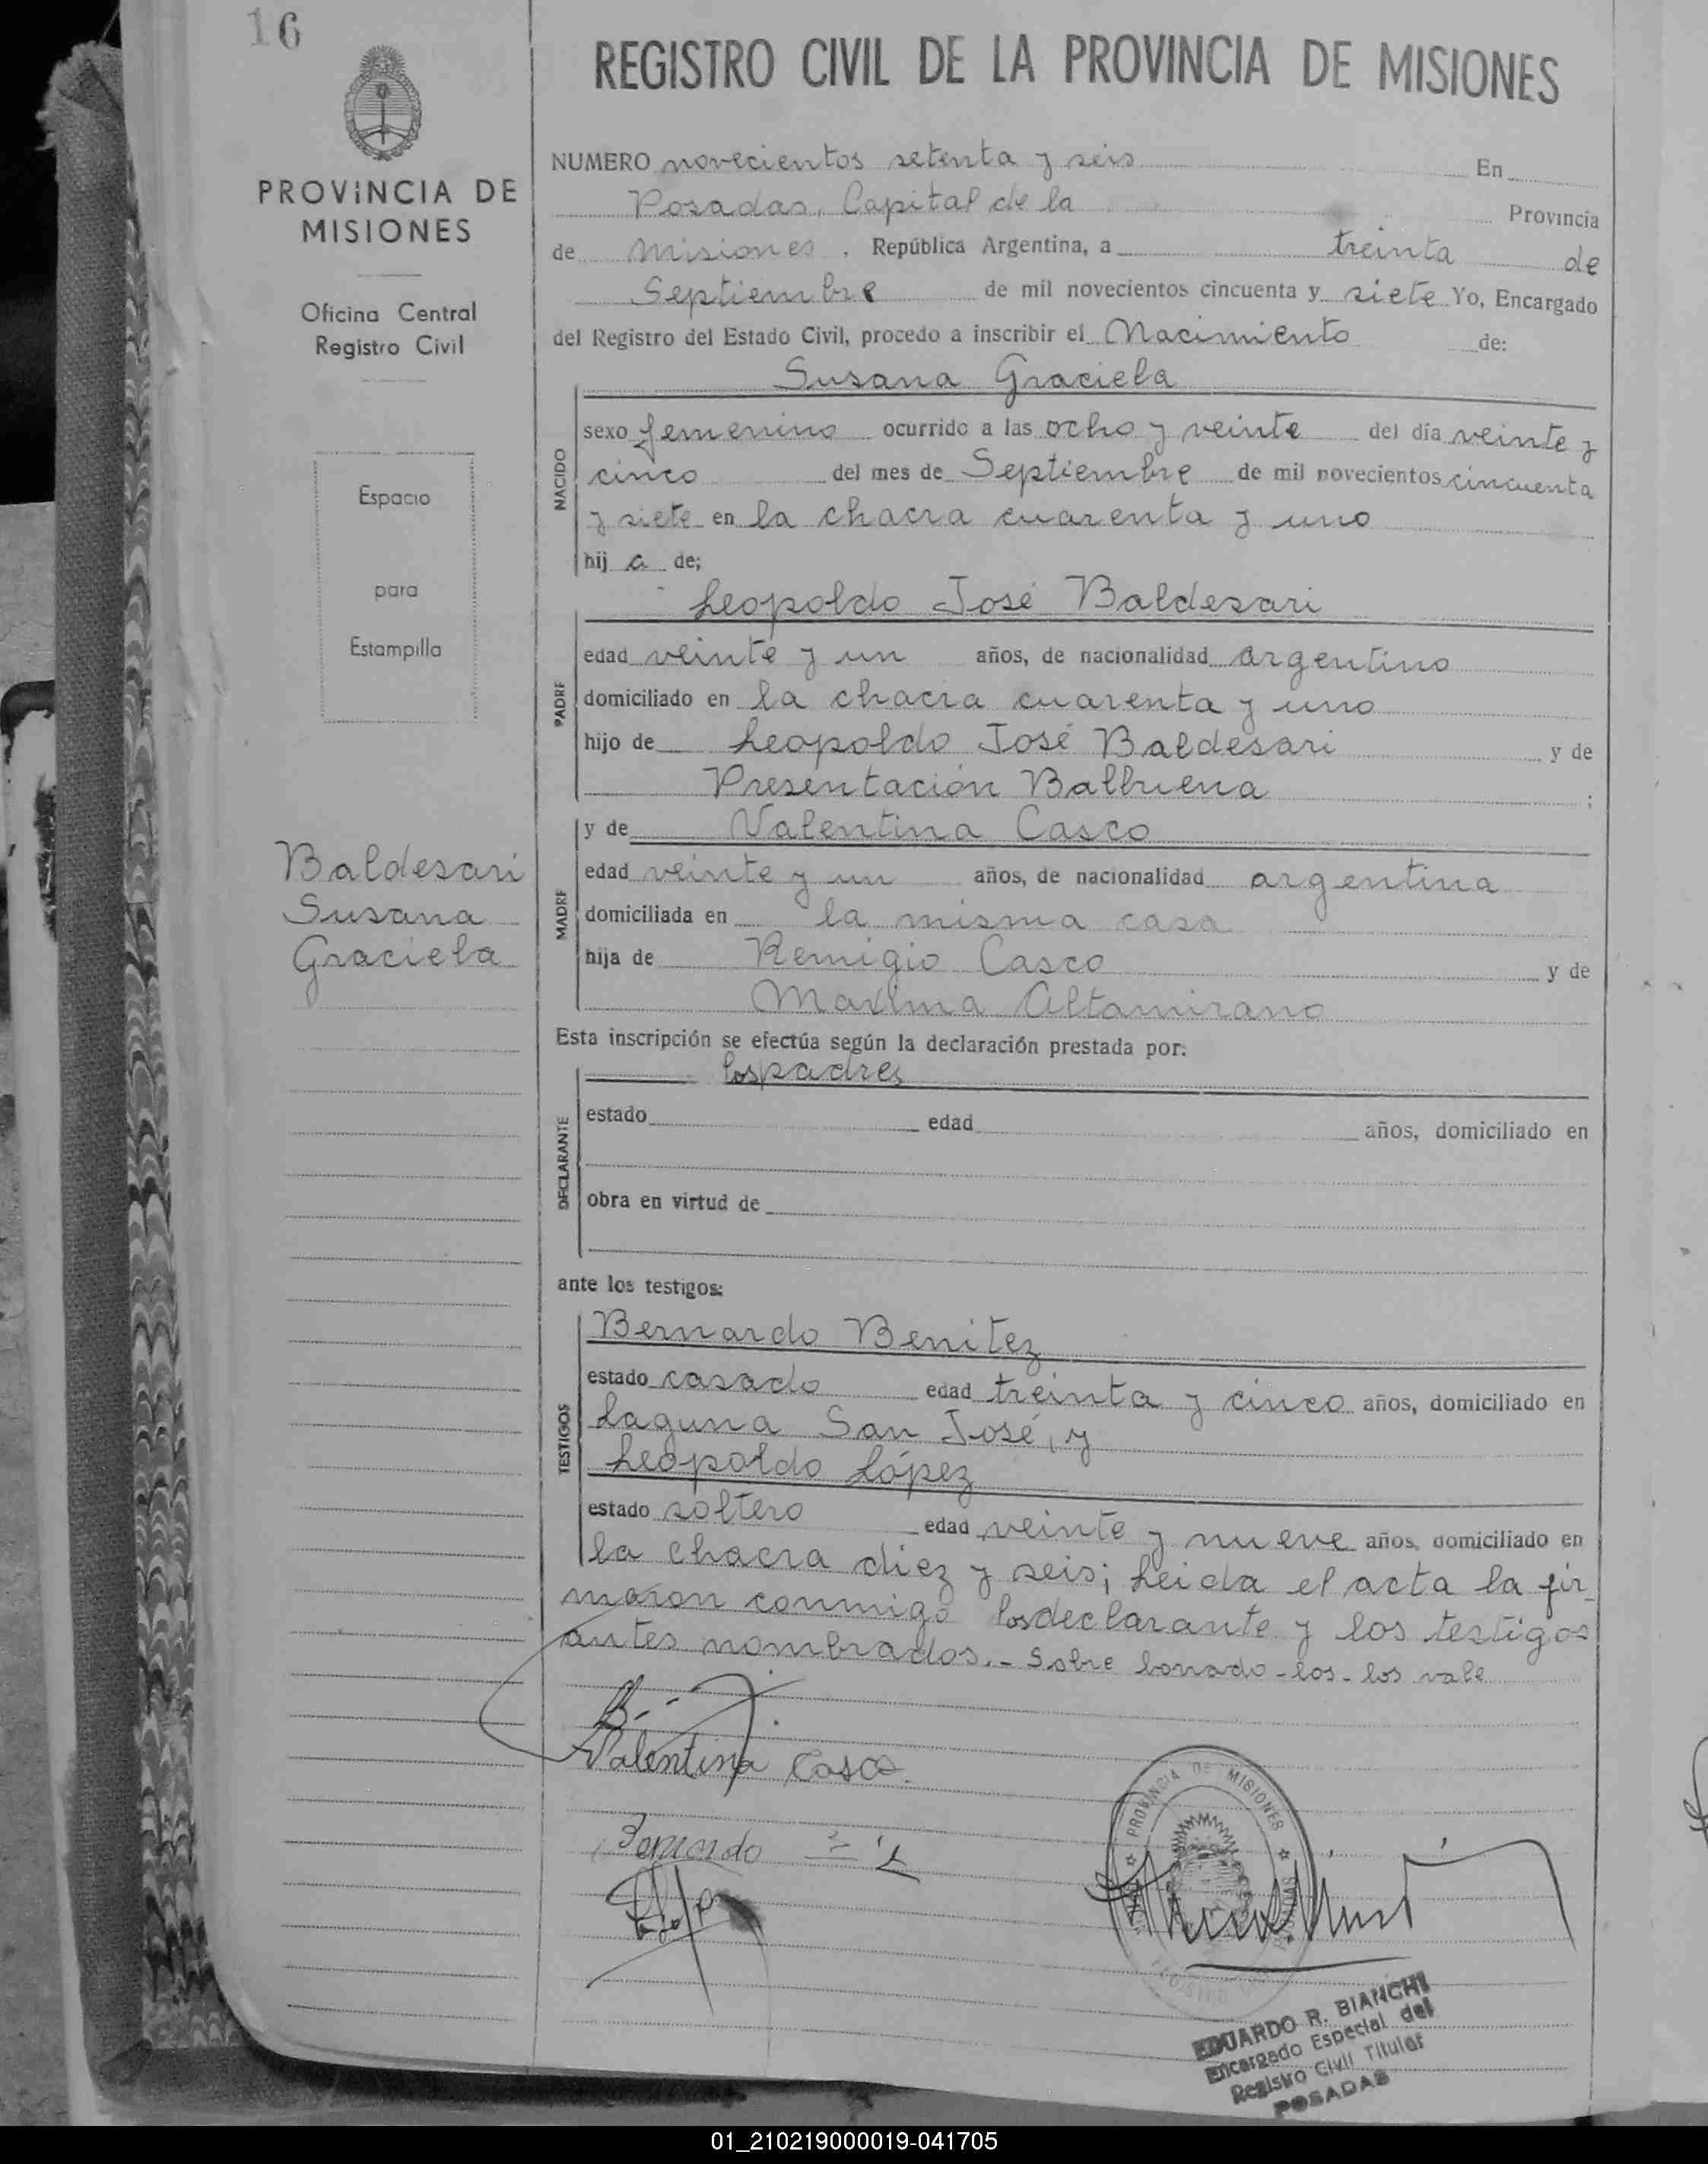 16
PROVINCIA DE
MISIONES
Oficina Central
Registro Civil
Espacio
para
Estampilla
Baldesari
Susana
Graciela
REGISTRO CIVIL DE LA PROVINCIA DE MISIONES
NUMERO novecientos setenta y seis En
Posadas, Capital de la Provincia
de Misiones, República Argentina, a treinta de
Septiembre de mil novecientos cincuenta y siete Yo, Encargado
del Registro del Estado Civil, procedo a inscribir el Nacimiento de:
Susana Graciela
NACIDO
sexo femenino ocurrido a las ocho y veinte del día veinte y
cinco del mes de Septiembre de mil novecientos cincuenta
y siete en la chacra cuarenta y uno
hij a de;
Leopoldo José Baldesari
PADRE
edad veinte y un años, de nacionalidad argentino
domiciliado en la chacra cuarenta y uno
hijo de Leopoldo José Baldesari y de
Presentación Balbuena ;
y de Valentina Casco
MADRE
edad veinte y un años, de nacionalidad argentina
domiciliada en la misma casa
hija de Remigio Casco y de
Maxima Altamirano
Esta inscripción se efectúa según la declaración prestada por:
los padres
DECLARANTE
estado edad años, domiciliado en
obra en virtud de
ante los testigos:
Bernardo Benitez
TESTIGOS
estado casado edad treinta y cinco años, domiciliado en
Laguna San José, y
Leopoldo López
estado soltero edad veinte y nueve años, domiciliado en
la chacra diez y seis; Leida el acta la fir_
maron conmigo los declarante y los testigos
antes nombrados.- Sobre borrado - los - los vale
Valentina Casco.
Bernardo
PROVINCIA DE MISIONES
EDUARDO R. BIANCHI
Encargado Especial del
Registro Civil Titular
POSADAS
01_210219000019-041705